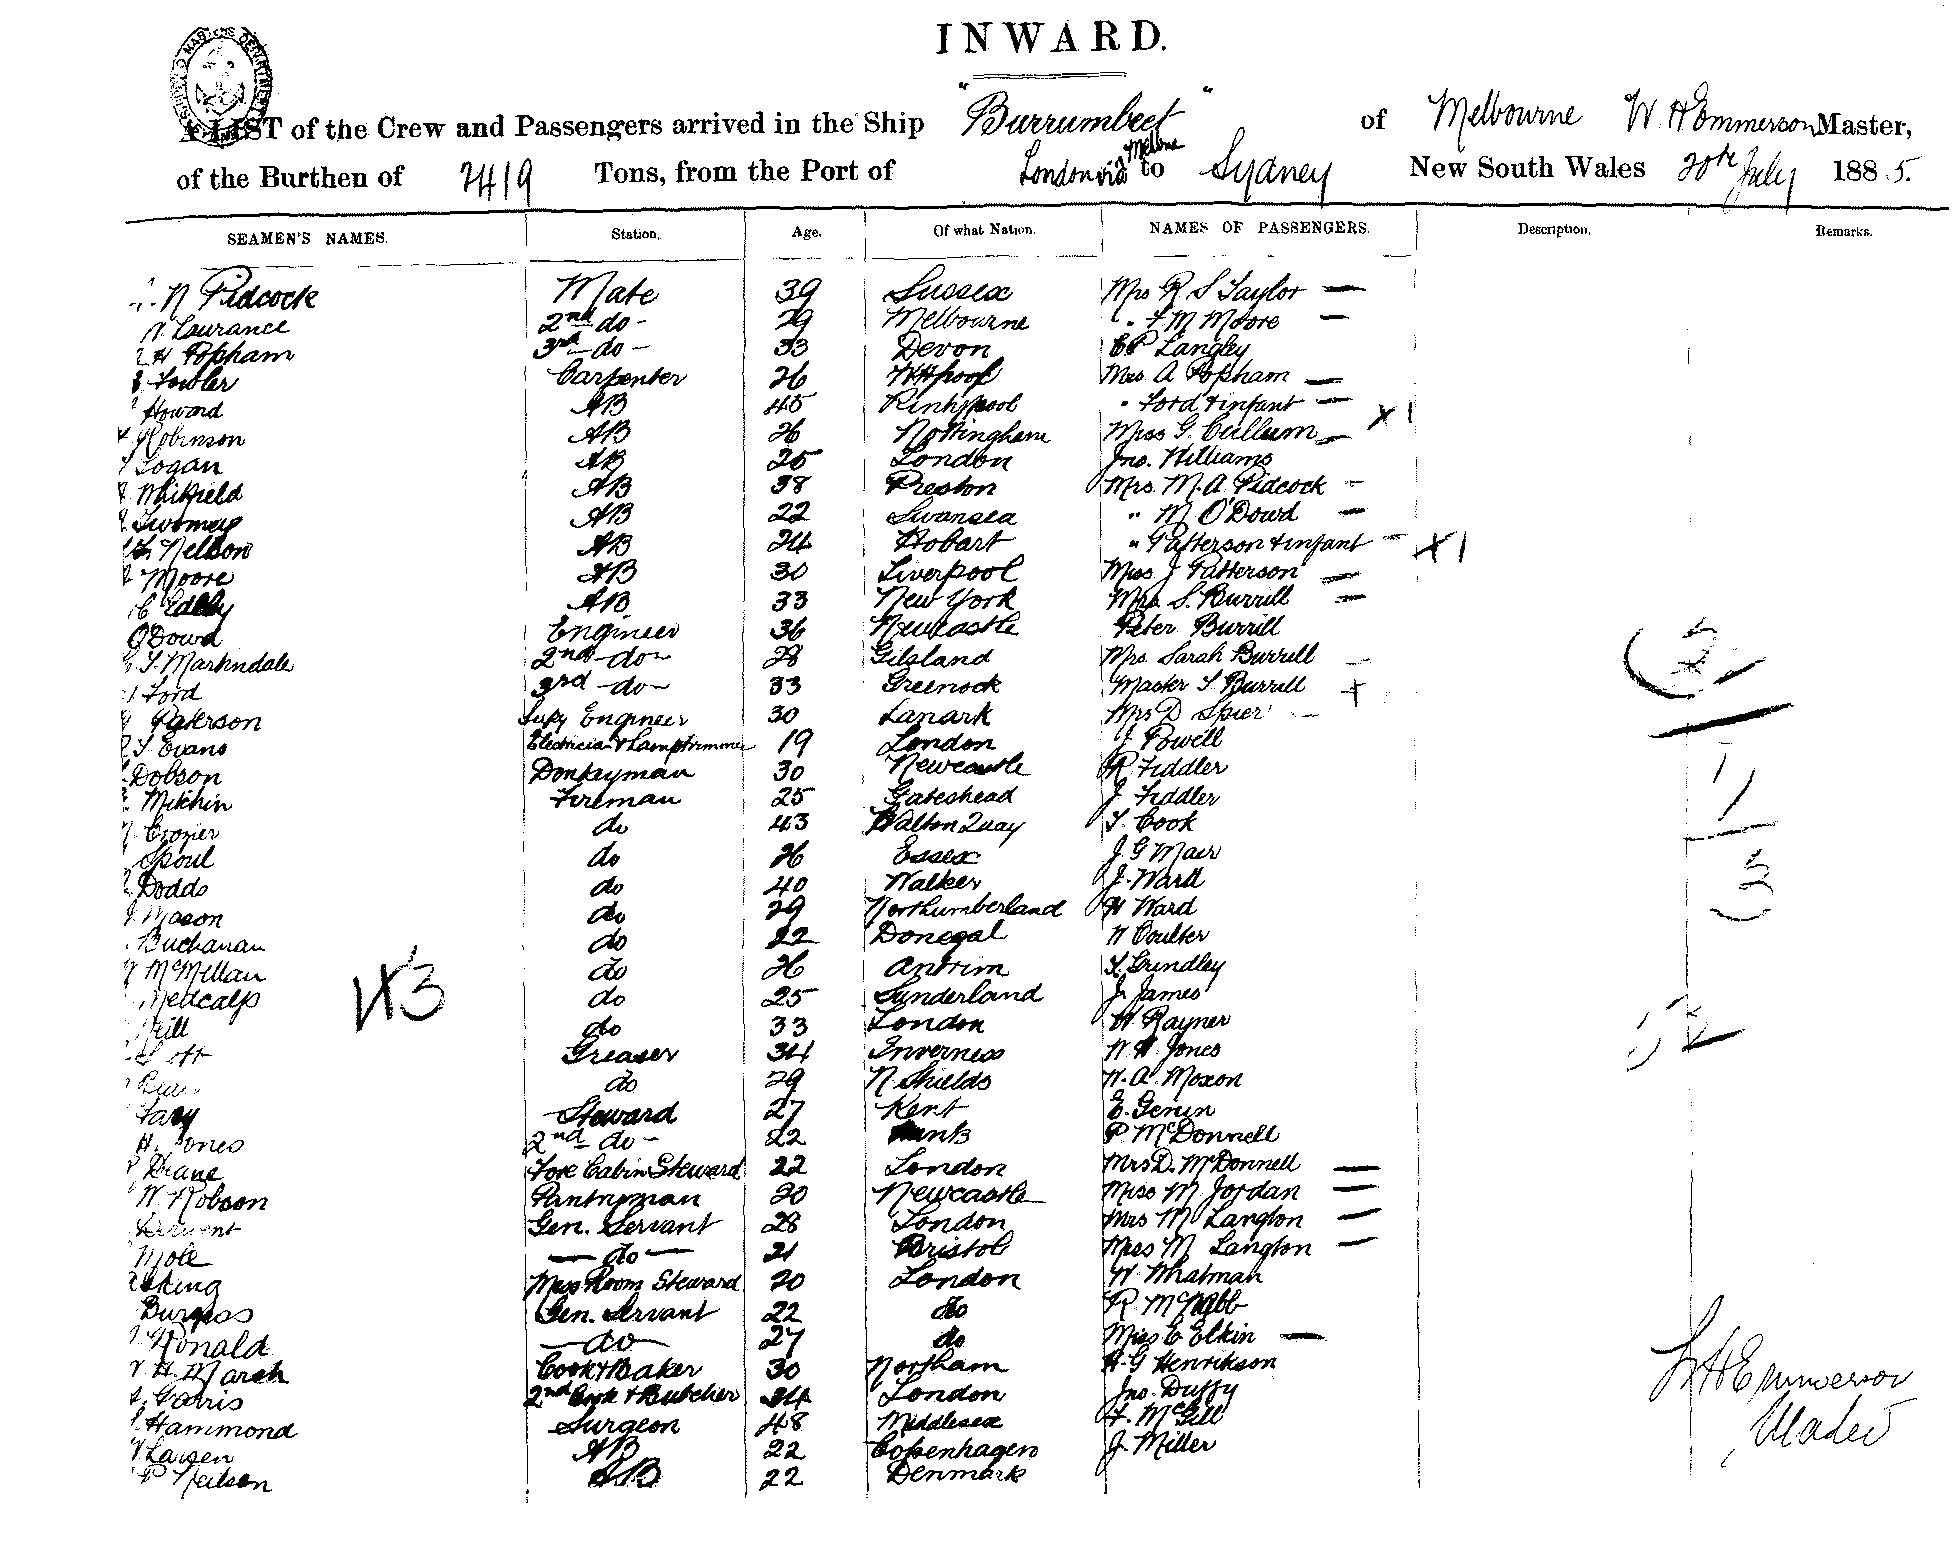 INWARD.
A LIST of the Crew and Passengers arrived in the Ship "Burrumbeet" of Melbourne W. H Emmerson Master,
of the Burthen of 2419 Tons, from the Port of London via Melbne to Sydney New South Wales 20th July 1885.
SEAMEN'S NAMES. Station. Age. Of what Nation. NAMES OF PASSENGERS. Description. Remarks.
N Pidcock Mate 39 Sussex Mrs R S Taylor —
Laurance 2nd do - 29 Melbourne " F M Moore —
H Popham 3rd - do - 33 Devon E P Langley
Fowler Carpenter 26 Mrs A Popham —
Howard AB 45 " Ford & infant — X 1
Robinson AB 26 Nottingham Miss G. Cullum —
Logan AB 25 London Jno. Williams
Whitfield AB 38 Preston Mrs. M. A. Pidcock —
Twomey AB 22 Swansea " M O'Dowd —
Nelson AB 24 Hobart " Patterson & infant — X 1
Moore AB 30 Liverpool Miss J Patterson —
C Edley AB 33 New York Mrs. S. Burrill —
O'Dowd Engineer 36 Newcastle Peter Burrill
T. Martindale 2nd - do - 28 Gilsland Mrs. Sarah Burrill —
Ford 3rd - do - 33 Greenock Master T Burrill +
Paterson Supy Engineer 30 Lanark Mrs D Spier —
T. Evans Electrician & Lamptrimmer 19 London J Powell
Dobson Donkeyman 30 Newcastle R Fiddler
Mitchin Fireman 25 Gateshead J Fiddler
Crozier do 43 Walton Quay T. Cook
Spoul do 26 Essex J G Mair
Dodds do 40 Walker J. Ward
Mason do 29 Northumberland H Ward
Buchanan do 22 Donegal W Coulter
McMillan do 26 Antrim T. Grundley
Medcalf do 25 Sunderland J. James
do 33 London W. Rayner
Greaser 34 Inverness W. H. Jones
do 29 N Shields W. A. Moxon
Steward 27 Kent E. Genin
H. Jones 2nd do - 22 P McDonnell
Deane Fore Cabin Steward 22 London Mrs D. McDonnell —
W. Robson Pantryman 20 Newcastle Miss M Jordan —
Gen. Servant 28 London Mrs M Langton —
Mole — do — 21 Bristol Miss M Langton —
King Mess Room Steward 20 London W. Whatman
Burgess Gen. Servant 22 do R. McNabb
Ronald — do — 27 do Miss E Elkin —
H. Marsh Cook & Baker 30 Northam H. G Henrikson
Garris 2nd Cook & Butcher 34 London Jno. Duffy
Hammond Surgeon 48 Middlesex F. McGill
Larsen AB 22 Copenhagen J. Miller
P Neilson AB 22 Denmark
W H Emmerson
Master